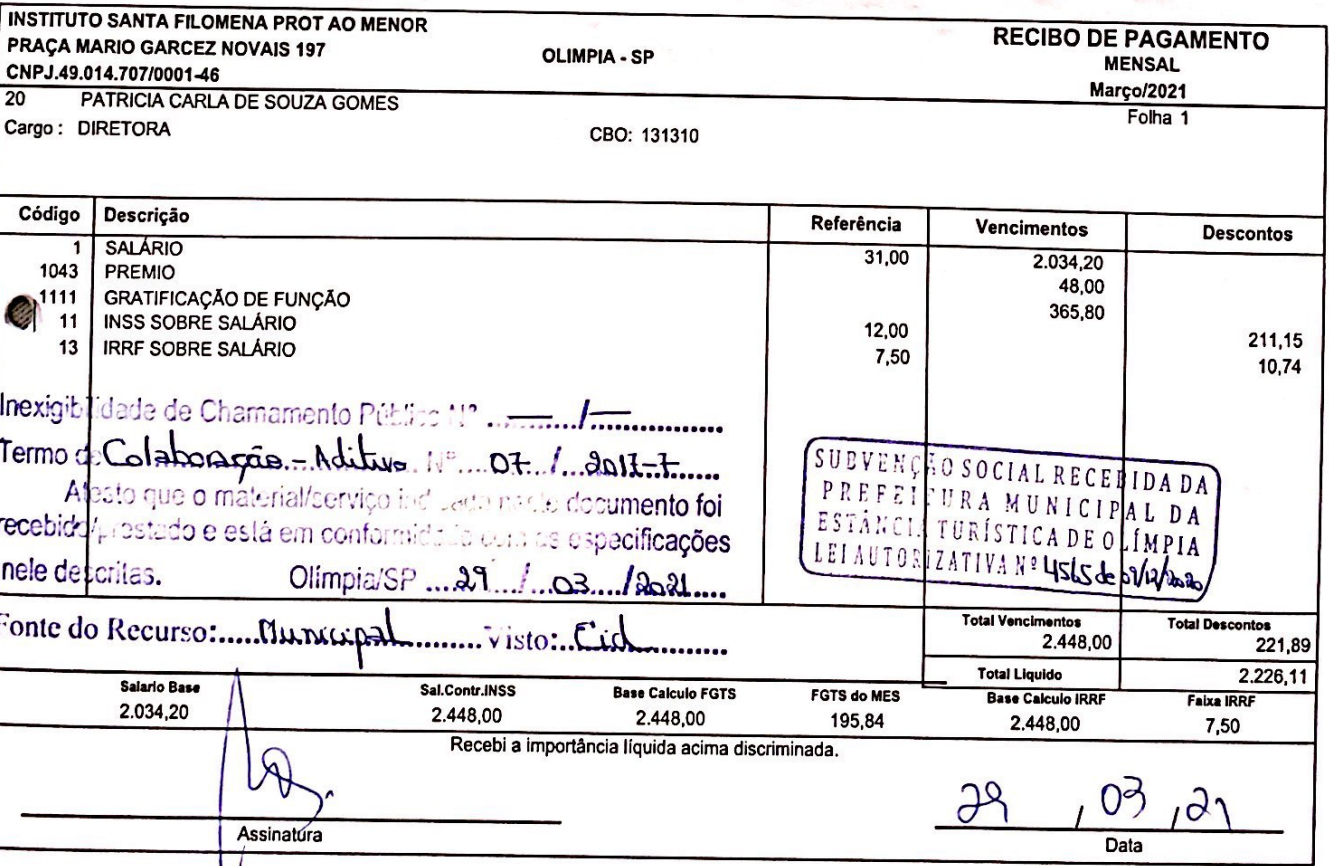 INSTITUTO SANTA FILOMENA PROT AO MENOR
PRAÇA MARIO GARCEZ NOVAIS 197
CNPJ.49.014.707/0001-46
OLIMPIA - SP
RECIBO DE PAGAMENTO
MENSAL
Março/2021
Folha 1
20 PATRICIA CARLA DE SOUZA GOMES
Cargo : DIRETORA
CBO: 131310
Código Descrição Referência Vencimentos Descontos
1 SALÁRIO 31,00 2.034,20
1043 PREMIO 48,00
1111 GRATIFICAÇÃO DE FUNÇÃO 365,80
11 INSS SOBRE SALÁRIO 12,00 211,15
13 IRRF SOBRE SALÁRIO 7,50 10,74
Inexigibilidade de Chamamento Público Nº ....—..../....—....
Termo de Colaboração - Aditivo Nº 07 / 2017-T
Atesto que o material/serviço indicado neste documento foi
recebido/prestado e está em conformidade com as especificações
nele descritas. Olímpia/SP 29 / 03 / 2021
SUBVENÇÃO SOCIAL RECEBIDA DA
PREFEITURA MUNICIPAL DA
ESTÂNCIA TURÍSTICA DE OLÍMPIA
LEI AUTORIZATIVA Nº 4565 de 01/12/2020
Fonte do Recurso:.....Municipal..........Visto:..Cid..........
Total Vencimentos Total Descontos
2.448,00 221,89
Total Liquido 2.226,11
Salario Base Sal.Contr.INSS Base Calculo FGTS FGTS do MES Base Calculo IRRF Faixa IRRF
2.034,20 2.448,00 2.448,00 195,84 2.448,00 7,50
Recebi a importância líquida acima discriminada.
29 , 03 , 21
Assinatura Data